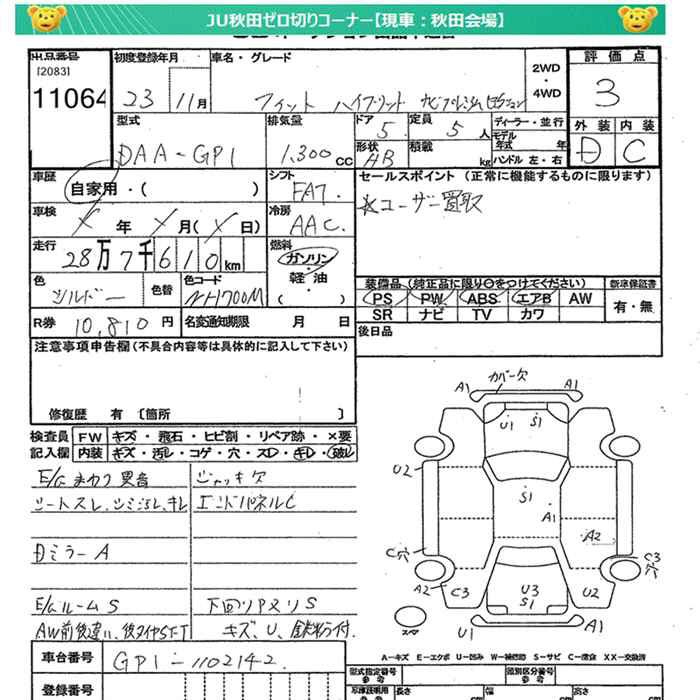 JU秋田ゼロ切りコーナー【現車：秋田会場】
出品番号 初度登録年月 車名・グレード 2WD・4WD 評価点
[2083]
11064 23 11月 フィット ハイブリッド ナビプレミアムセレクション 3
型式 排気量 ドア 5 定員 5人 ディーラー・並行 外装 内装
DAA-GP1 1,300cc 形状 HB 積載 kg モデル年式 年 ハンドル 左・右 D C
車歴 自家用・( ) シフト FAT. セールスポイント (正常に機能するものに限ります)
車検 × 年 × 月( × 日) 冷房 AAC. ※ユーザー買取
走行 28万7千610km 燃料 ガソリン・軽油( )
色 シルバー 色替 色コード NH700M
装備品 (純正品に限り○をつけてください) 新車保証書
PS PW ABS エアB AW 有・無
SR ナビ TV カワ
R券 10,810円 名変通知期限 月 日 後日品
注意事項申告欄 (不具合内容等は具体的に記入して下さい)
修復歴 有 〔箇所 〕
検査員 FW キズ・飛石・ヒビ割・リペア跡・×要
記入欄 内装 キズ・汚レ・コゲ・穴・スレ・キレ・破レ
E/Gまわり異音 ジャッキ欠
シートスレ、シミ汚レ、キレ エンドパネルC
Dミラー A
E/Gルーム S 下回りサスリ S
AW前後違い、後タイヤS-T キズ、U、
車台番号 GP1-1102142
登録番号
カバー欠
A1 A1
U1 S1
U2
S1
A1
A2
C穴 C3穴
A2 C3 U3 S1 U2
U1 A1
スペア
A-キズ E-エクボ U-凹み W-補修跡 S-サビ C-腐食 XX-交換済
型式指定番号 参考 類別区分番号 参考
長さ cm 幅 cm 高さ cm